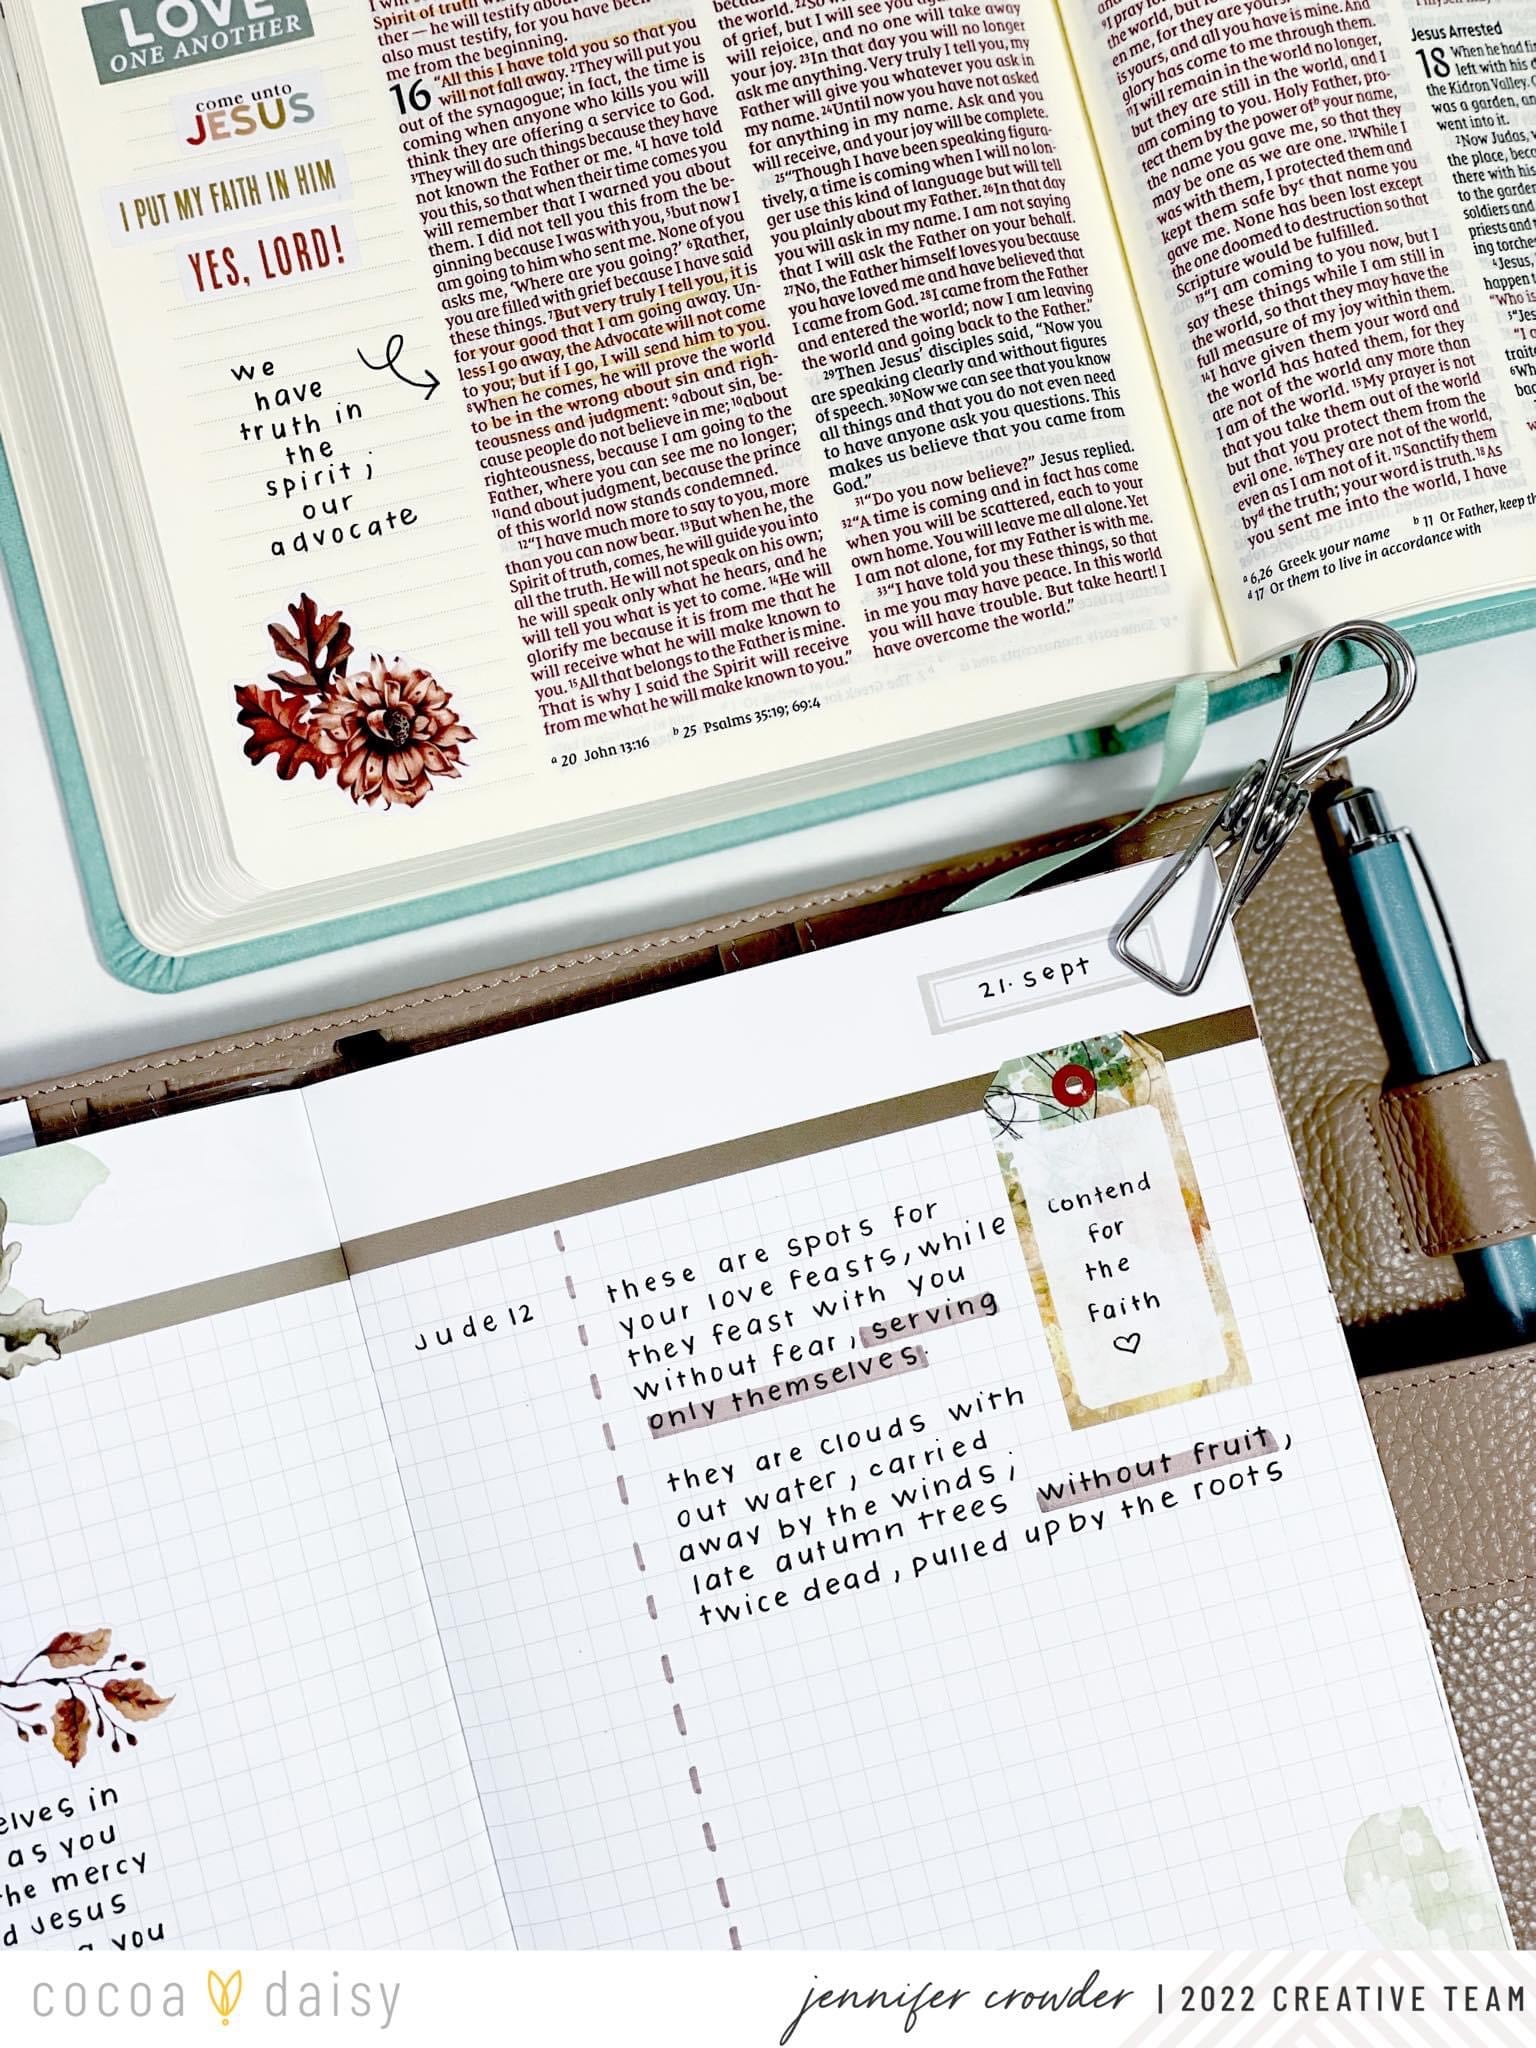 LOVE
ONE ANOTHER
come unto
JESUS
I PUT MY FAITH IN HIM
YES, LORD!
we
have
truth in
the
spirit;
our
advocate
Spirit of truth
ther — he will testify
also must testify, for you have been
me from the beginning.
16 "All this I have told you so that you
will not fall away. 2They will put you
out of the synagogue; in fact, the time is
coming when anyone who kills you will
think they are offering a service to God.
3They will do such things because they have
not known the Father or me. 4I have told
you this, so that when their time comes you
will remember that I warned you about
them. I did not tell you this from the be-
ginning because I was with you, 5but now I
am going to him who sent me. None of you
asks me, 'Where are you going?' 6Rather,
you are filled with grief because I have said
these things. 7But very truly I tell you, it is
for your good that I am going away. Un-
less I go away, the Advocate will not come
to you; but if I go, I will send him to you.
8When he comes, he will prove the world
to be in the wrong about sin and righ-
teousness and judgment: 9about sin, be-
cause people do not believe in me; 10about
righteousness, because I am going to the
Father, where you can see me no longer;
11and about judgment, because the prince
of this world now stands condemned.
12"I have much more to say to you, more
than you can now bear. 13But when he, the
Spirit of truth, comes, he will guide you into
all the truth. He will not speak on his own;
he will speak only what he hears, and he
will tell you what is yet to come. 14He will
glorify me because it is from me that he
will receive what he will make known to
you. 15All that belongs to the Father is mine.
That is why I said the Spirit will receive
from me what he will make known to you."
a 20 John 13:16 b 25 Psalms 35:19; 69:4
the world. 22So
of grief, but I will see you
will rejoice, and no one will take away
your joy. 23In that day you will no longer
ask me anything. Very truly I tell you, my
Father will give you whatever you ask in
my name. 24Until now you have not asked
for anything in my name. Ask and you
will receive, and your joy will be complete.
25"Though I have been speaking figura-
tively, a time is coming when I will no lon-
ger use this kind of language but will tell
you plainly about my Father. 26In that day
you will ask in my name. I am not saying
that I will ask the Father on your behalf.
27No, the Father himself loves you because
you have loved me and have believed that
I came from God. 28I came from the Father
and entered the world; now I am leaving
the world and going back to the Father."
29Then Jesus' disciples said, "Now you
are speaking clearly and without figures
of speech. 30Now we can see that you know
all things and that you do not even need
to have anyone ask you questions. This
makes us believe that you came from
God."
31"Do you now believe?" Jesus replied.
32"A time is coming and in fact has come
when you will be scattered, each to your
own home. You will leave me all alone. Yet
I am not alone, for my Father is with me.
33"I have told you these things, so that
in me you may have peace. In this world
you will have trouble. But take heart! I
have overcome the world."
the world, but for
en me, for they are yours.
is yours, and all you have is mine. And
glory has come to me through them.
11I will remain in the world no longer,
but they are still in the world, and I
am coming to you. Holy Father, pro-
tect them by the power of b your name,
the name you gave me, so that they
may be one as we are one. 12While I
was with them, I protected them and
kept them safe by c that name you
gave me. None has been lost except
the one doomed to destruction so that
Scripture would be fulfilled.
13"I am coming to you now, but I
say these things while I am still in
the world, so that they may have the
full measure of my joy within them.
14I have given them your word and
the world has hated them, for they
are not of the world any more than
I am of the world. 15My prayer is not
that you take them out of the world
but that you protect them from the
evil one. 16They are not of the world,
even as I am not of it. 17Sanctify them
by d the truth; your word is truth. 18As
you sent me into the world, I have
a 6,26 Greek your name b 11 Or Father, keep
d 17 Or them to live in accordance with
Jesus Arrested
18 When he had
left with his
the Kidron Valley.
was a garden, and
went into it.
2Now Judas,
the place,
there with his
to the garden
soldiers and
priests and
ing torches
4Jesus,
happen
"Who is
21. Sept
Contend
for
the
Faith
Jude 12
these are spots for
your love feasts, while
they feast with you
without fear, serving
only themselves.
they are clouds with
out water, carried
away by the winds;
late autumn trees without fruit,
twice dead, pulled up by the roots
elves in
as you
he mercy
d Jesus
you
cocoa daisy
jennifer crowder | 2022 CREATIVE TEAM